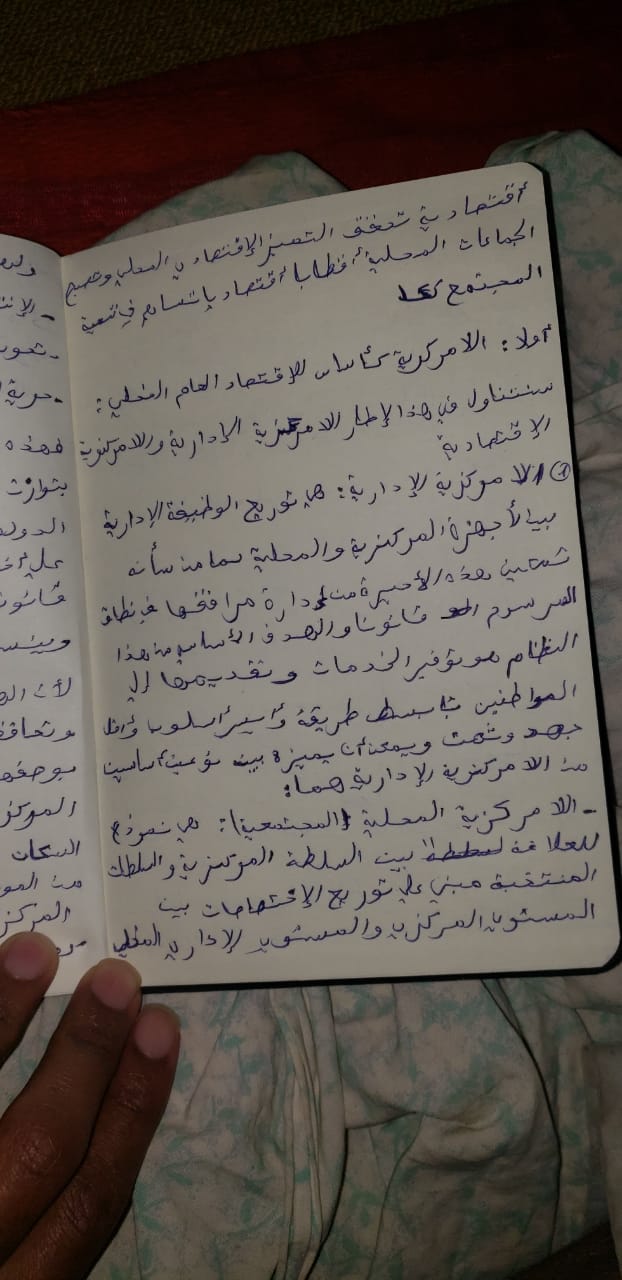 أقتصادية تحقق التميز الإقتصادي المحلي وتصبح
الجماعات المحلية أقطابا أقتصاديا تساهم في تنمية
المجتمع
أولا: الامركزية كأساس للإقتصاد العام المحلي:
سنتناول في هذا الإطار الامركزية الإدارية والامركزية
الإقتصادية
① الا مركزية الإدارية: هي توزيع الوظيفة الإدارية
بين الأجهزة المركزية والمحلية بما من سأنه
تمكين هذه الأخيرة من إدارة مرافقها في نطاق
المرسوم قانونا والهدف الأساسي من هذا
النظام هو توفير الخدمات وتقديمها إلى
المواطنين بأبسط طريقة وأيسر أسلوب وأقل
جهد ويمكن أن يميزه بين نوعين أساسيين
من الامركزية الإدارية هما:
- الامركزية المحلية (المجتمعية): هي نموذج
للعلاقة بين السلطة المركزية والسلطات
المنتخبة مبني على توزيع الإختصاصات بين
المستوى المركزي والمستوى الإداري المحلي
- الإنت
- حرية
فهذه
بتوازن
الدولة
على أ
قانون
لأن
المركز
السكان
من المو
المركز